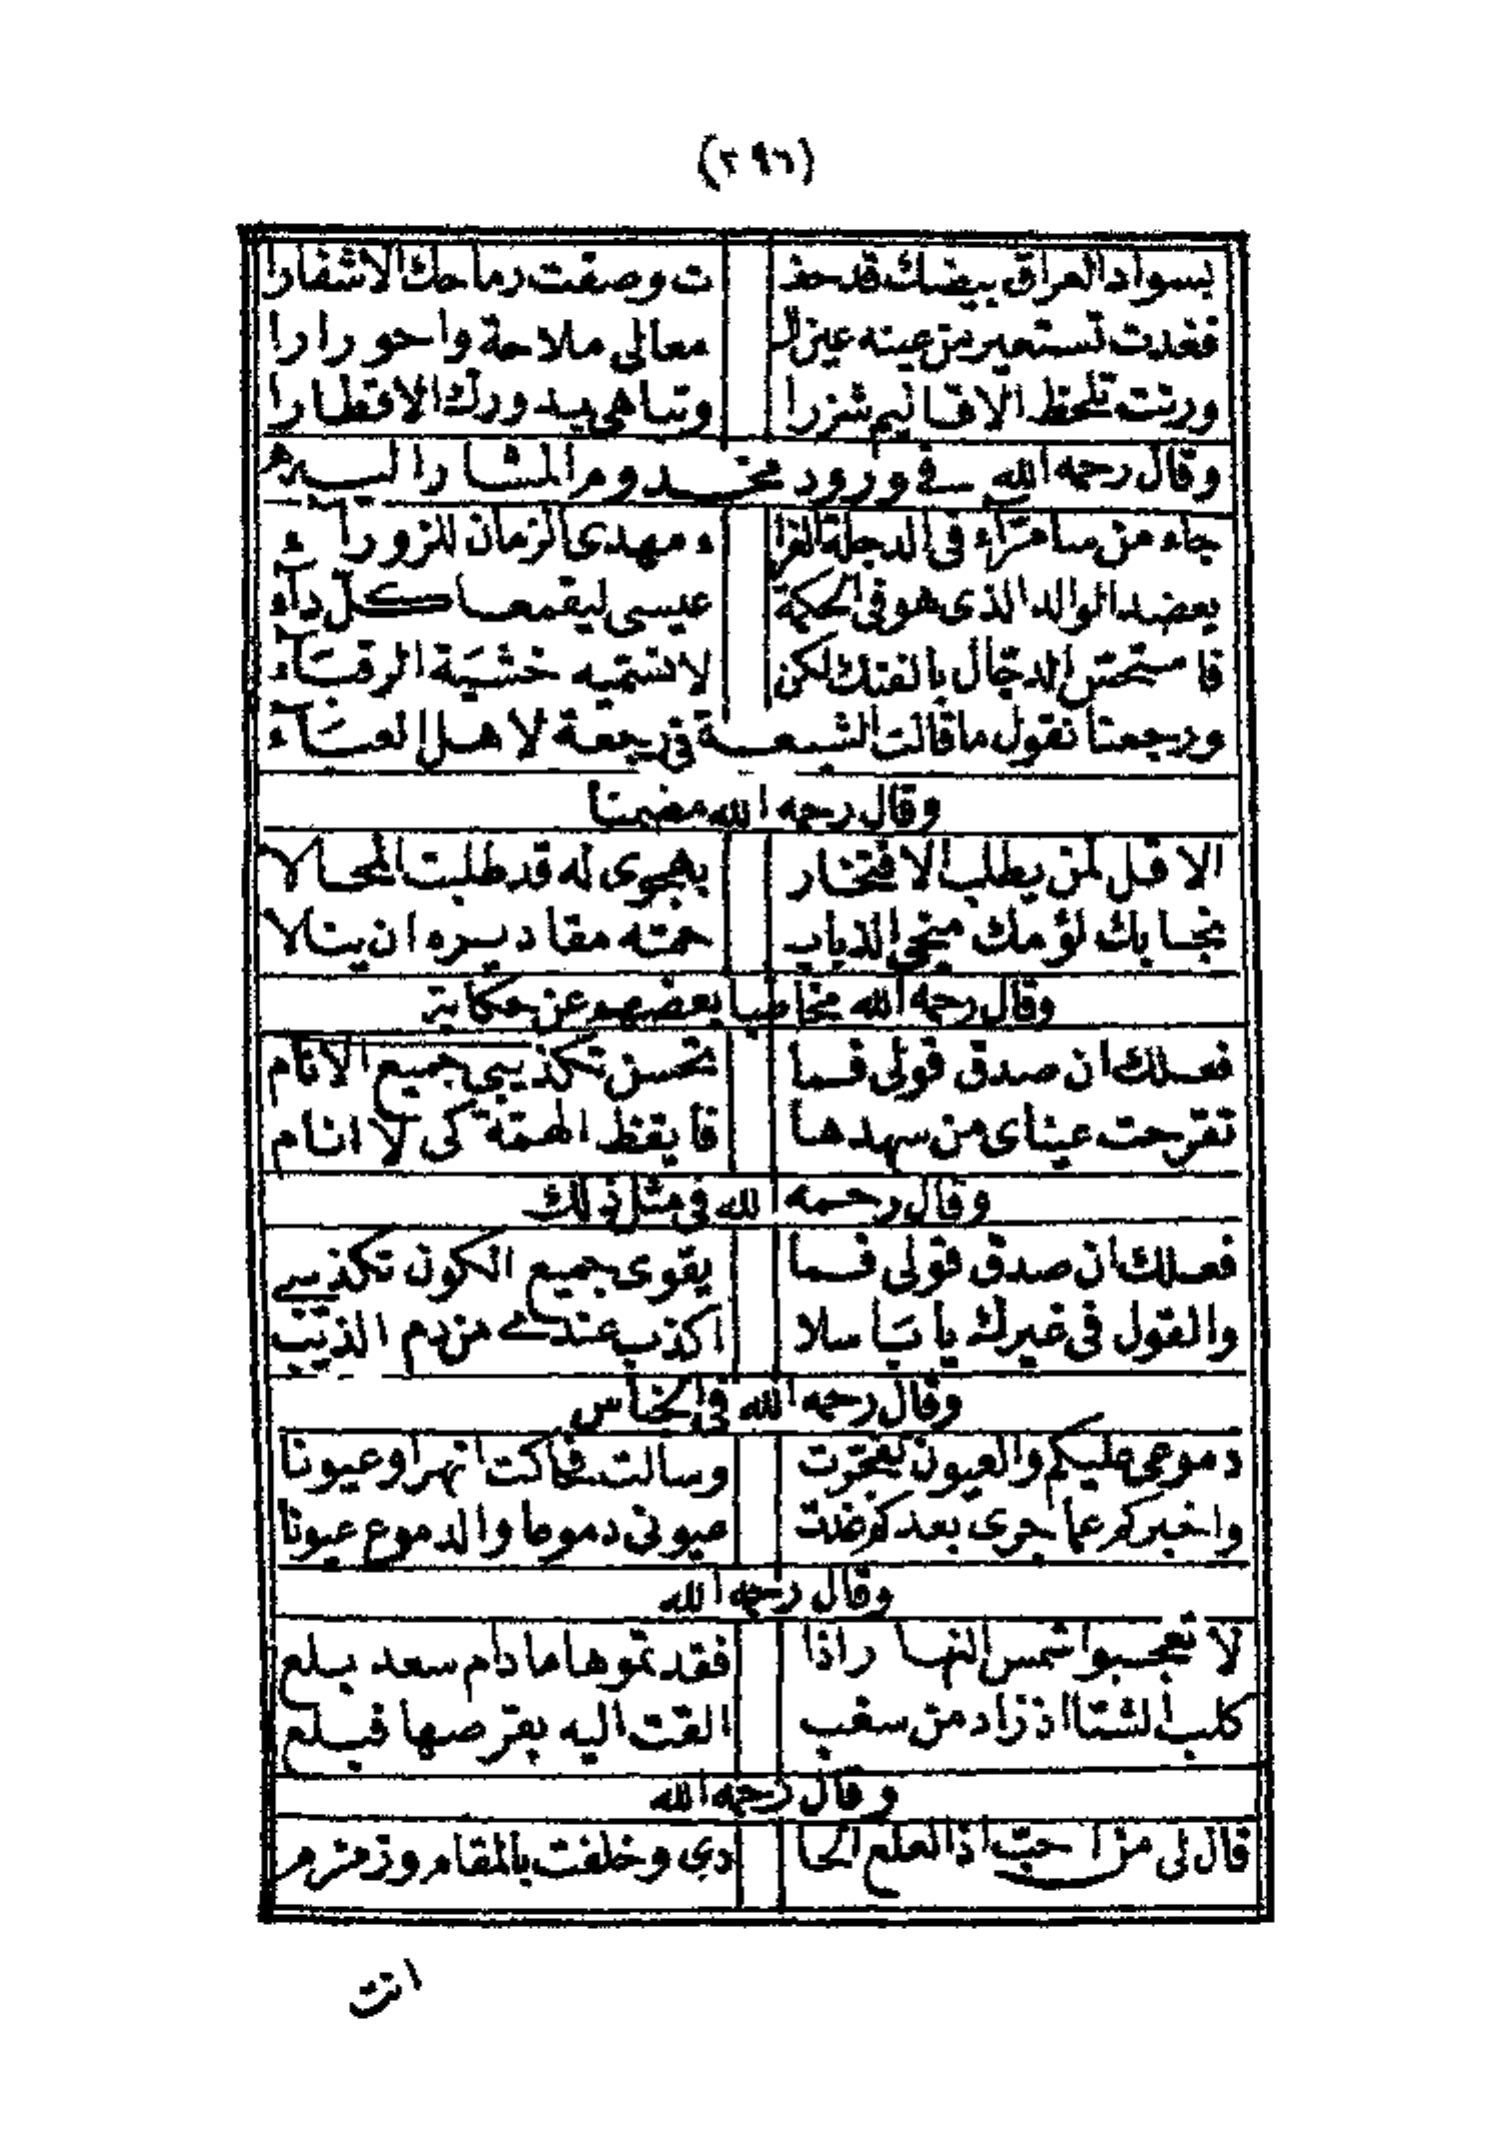 (٢٩٦)
بسواد العراق ببيضك قد حفـ ت وصفت رماحك الاشفارا
فغدت تستعير من عينه عين الـ معالي ملاحة واحورارا
ورنت تلحظ الاقاليم شزرا وتباهي ببدورك الاقطارا
وقال رحمه الله في ورود مخدوم المشار اليه
جاء من سامرّاء في الدجلة الغرا ء مهدى الزمان للزوراء
بعضد الوالد الذى هو في الحكمة عيسى ليقمعا كل داء
فا الدجّال بالفتك لكن لا نسمّيه خشيَة الرقبَاء
ورجعنا نقول ما قالت الشيعــة في رجعة لاهل العبَاء
وقال رحمه الله مضمنا
الا قل لمن يطلب الافتخار بهجوى له قد طلبت المحالا
نجا بك لؤمك منجى الذباب حمته مقاديره ان ينالا
وقال رحمه الله مخاطبا بعضهم عن حكاية
فعلك ان صدق قولى فما تحسن تكذيبي جميع الانام
تقرحت عيناى من سهدها فايقظ الهمّة كى لا انام
وقال رحمه الله في مثل ذلك
فعلك ان صدق قولى فما يقوى جميع الكون تكذيبي
والقول في غيرك يا باسلا اكذب عندي من دم الذئب
وقال رحمه الله في الخاس
دموعى عليكم والعيون تفجرت وسالت فحاكت انهرا وعيونا
واخبركم عما جرى بعدكم غدت عيونى دموعا والدموع عيونا
وقال رحمه الله
لا تعجبوا شمس النهار اذا فقدتموها ما دام سعد بلع
كلب الشتا اذ زاد من سغب القت اليه بقرصها فبلع
وقال رحمه الله
قال لى من احبّ اذ العلع الحا دي وخلفت بالمقام وزمزم
انت